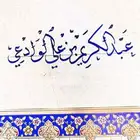 عبدالكريم بن علي الوادعي